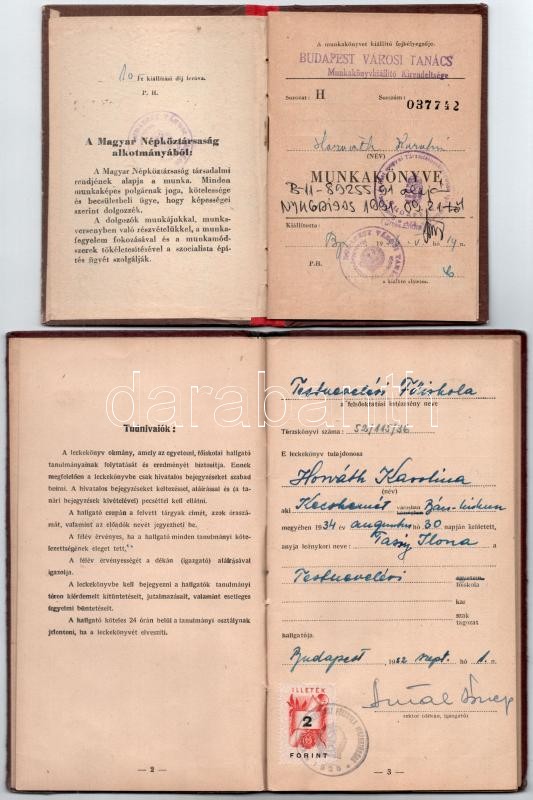 10 Ft kiállítási díj leróva.
P. H.
A Magyar Népköztársaság
alkotmányából:
A Magyar Népköztársaság társadalmi
rendjének alapja a munka. Minden
munkaképes polgárnak joga, kötelessége
és becsületbeli ügye, hogy képességei
szerint dolgozzék.
A dolgozók munkájukkal, munka-
versenyben való részvételükkel, a munka-
fegyelem fokozásával és a munkamód-
szerek tökéletesítésével a szocialista épí-
tés ügyét szolgálják.
A munkakönyvet kiállító fejbélyegzője.
BUDAPEST VÁROSI TANÁCS
Munkakönyvkiállító Kirendeltsége
Sorozat: H Sorszám: 037742
Horváth Karolin
(NÉV)
MUNKAKÖNYVE
NYUGDIJAS 1991. 09. 21-től
Kiállította:
Bp. 19
hó 14 n.
P.H.
a kiállító aláírása.
Tudnivalók:
A leckekönyv okmány, amely az egyetemi, főiskolai hallgató
tanulmányainak folytatását és eredményét biztosítja. Ennek
megfelelően a leckekönyvbe csak hivatalos bejegyzéseket szabad
beírni. A hivatalos bejegyzéseket keltezéssel, aláírással és (a ta-
nári bejegyzések kivételével) pecséttel kell ellátni.
A hallgató csupán a felvett tárgyak címét, azok óraszá-
mát, valamint az előadók nevét jegyezheti be.
A félév érvényes, ha a hallgató minden tanulmányi köte-
lezettségének eleget tett.
A félév érvényességét a dékán (igazgató) aláírásával
igazolja.
A leckekönyvbe kell bejegyezni a hallgatók tanulmányi
téren kiérdemelt kitüntetéseit, jutalmazásait, valamint esetleges
fegyelmi büntetéseit.
A hallgató köteles 24 órán belül a tanulmányi osztálynak
jelenteni, ha a leckekönyvét elveszíti.
— 2 —
Testnevelési Főiskola
a felsőoktatási intézmény neve
Törzskönyvi száma: 52/115/36
E leckekönyv tulajdonosa
Horváth Karolina
(név)
aki Kecskemét városban községben Bács-kiskun
megyében 1934 év augusztus hó 30 napján született,
anyja leánykori neve: Tasi Ilona
a
Testnevelési egyetem
főiskola
kar
szak
tagozat
hallgatója.
Budapest, 1952 szept. hó 1. n.
rektor (dékán, igazgató)
ILLETÉK
2
FORINT
— 3 —
darabanth